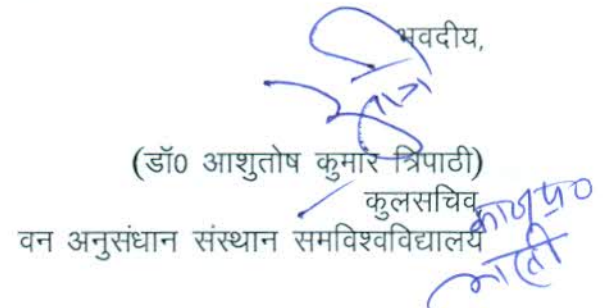 भवदीय,
(डॉ0 आशुतोष कुमार त्रिपाठी)
कुलसचिव,
वन अनुसंधान संस्थान समविश्वविद्यालय